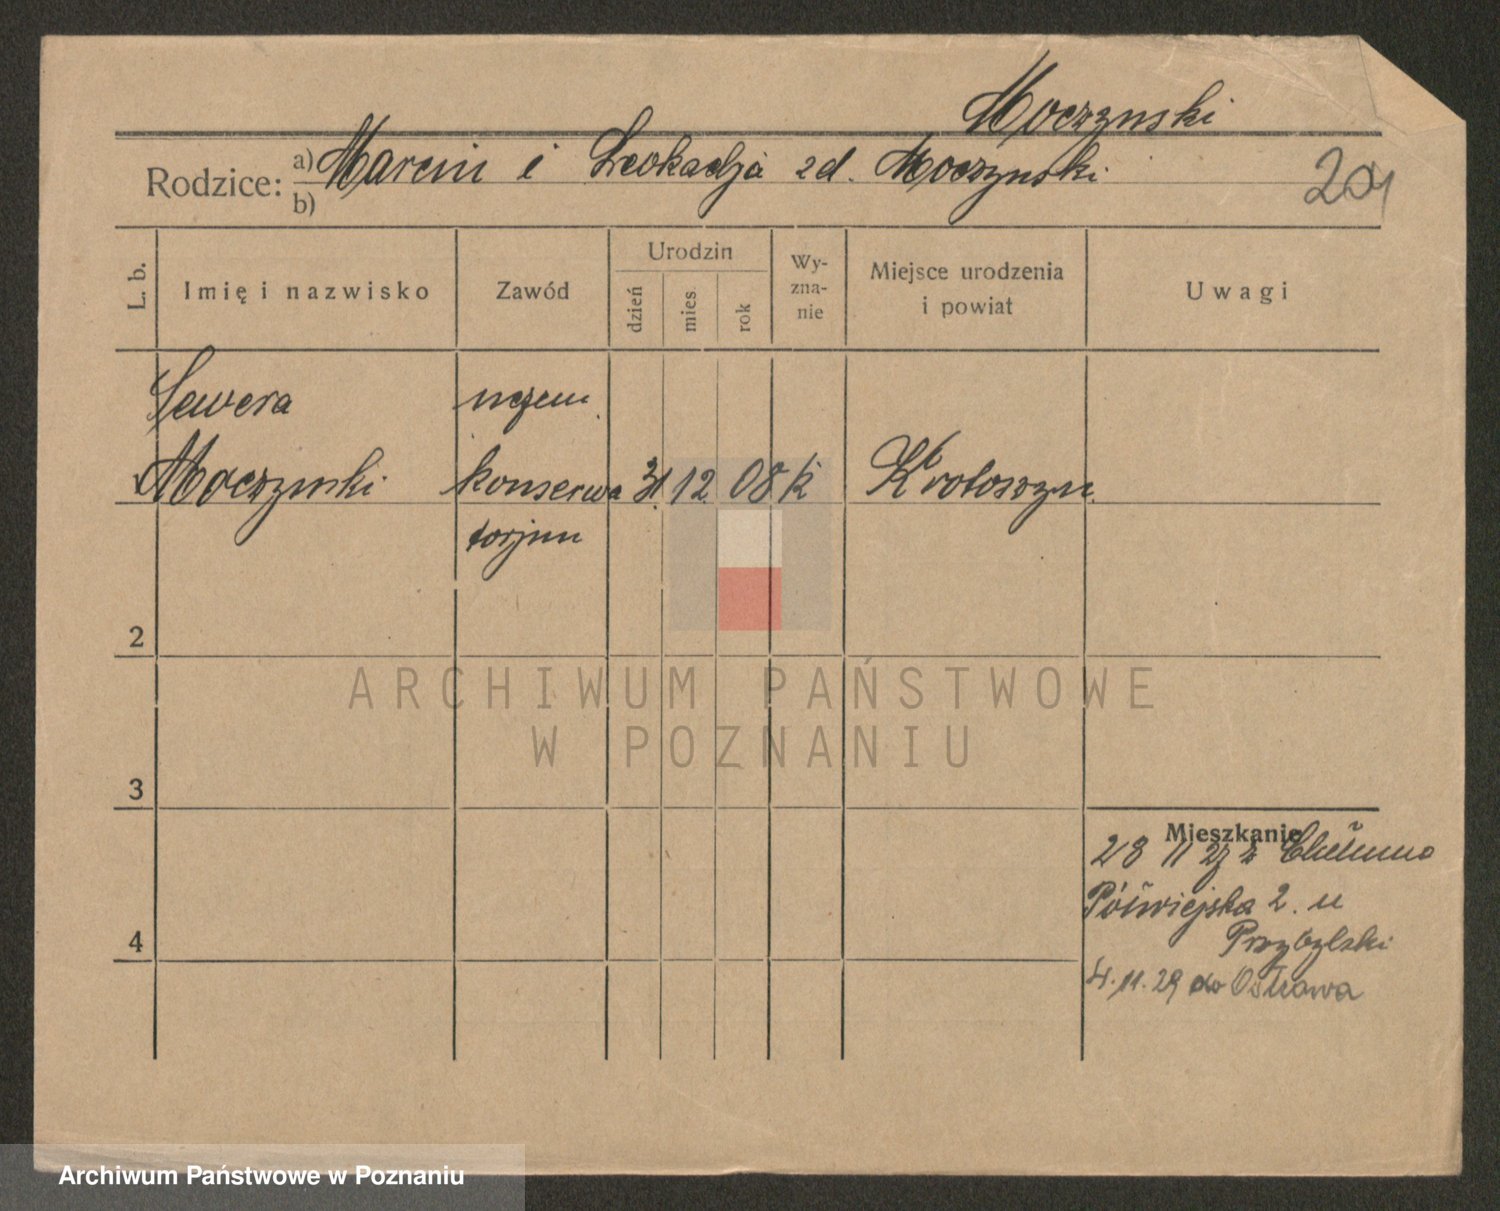 Moczynski
Rodzice: a) Marcin i Leokadja zd. Moczynski
b)
201
L. b.
Imię i nazwisko
Zawód
Urodzin
dzień
mies
rok
Wy-
zna-
nie
Miejsce urodzenia
i powiat
Uwagi
Sewera
uczeń
1 Moczynski
konserwa
31. 12. 08 k
Krotoszyn.
torjum
2
3
4
Mieszkanie
28 11 27 z Chełmna
Półwiejska 2. u
Przybylski
4.11.29 do Ostrowa
ARCHIWUM PAŃSTWOWE
W POZNANIU
Archiwum Państwowe w Poznaniu